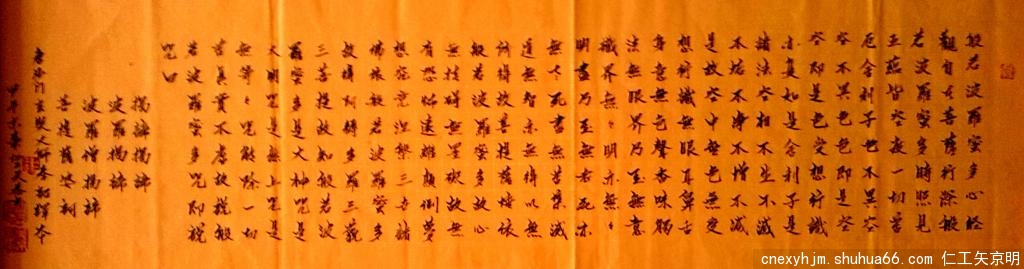 般若波羅蜜多心経
觀自在菩薩行深般
若波羅蜜多時照見
五蘊皆空度一切苦
厄舍利子色不異空
空不異色色即是空
空即是色受想行識
亦复如是舍利子是
諸法空相不生不滅
不垢不淨不增不減
是故空中無色無受
想行識無眼耳鼻舌
身意無色聲香味觸
法無眼界乃至無意
識界無々明亦無々
明盡乃至無老死亦
無老死盡無苦集滅
道無智亦無得以無
所得故菩提薩埵依
般若波羅蜜多故心
無挂礙無罣礙故無
有恐怖遠離顛倒夢
想究竟涅槃三世諸
佛依般若波羅蜜多
故得阿耨多羅三藐
三菩提故知般若波
羅蜜多是大神咒是
大明咒是無上咒是
無等々咒能除一切
苦真實不虛故說般
若波羅蜜多咒即說
咒曰
揭諦揭諦
波羅揭諦
波羅僧揭諦
菩提薩婆訶
唐沙門玄奘大师奉詔譯本
甲午
cnexyhjm.shuhua66.com 仁工矢京明